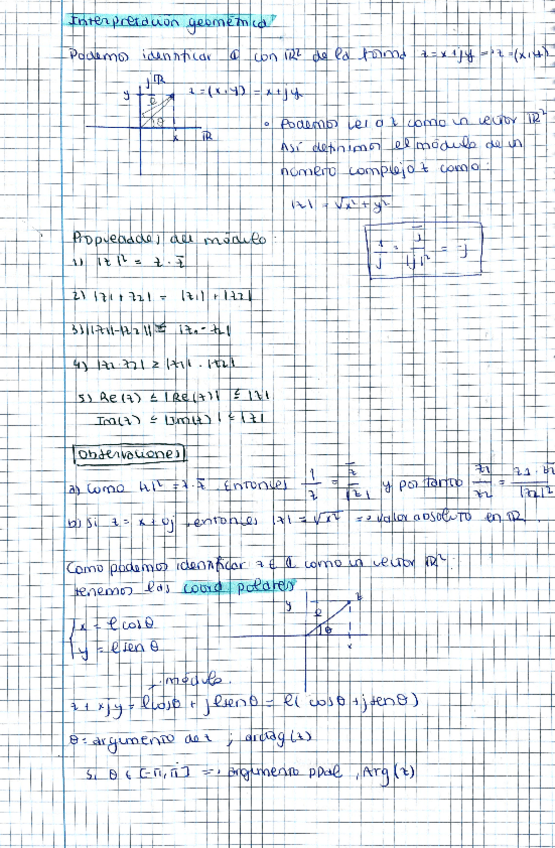 Interpretación geométrica
Podemos identificar ℂ con ℝ² de la forma z=x+jy => z=(x,y)
jℝ
y ρ z=(x,y) = x+jy
θ
x ℝ
• Podemos ver a z como un vector ℝ²
Así definimos el módulo de un
número complejo z como:
|z| = √x²+y²
Propiedades del módulo:
1) |z|² = z · z̅
2) |z1+z2| = |z1| + |z2|
3) ||z1|-|z2|| ≤ |z1-z2|
4) |z1·z2| ≥ |z1|·|z2|
5) Re(z) ≤ |Re(z)| ≤ |z|
Im(z) ≤ |Im(z)| ≤ |z|
Observaciones
a) Como |z|² = z·z̅, entonces 1/z = z̅/|z| y por tanto z1/z2 = z1·z̅2/|z2|²
b) Si z = x+0j, entonces |z| = √x² => valor absoluto en ℝ
Como podemos identificar z ∈ ℂ como un vector ℝ²:
tenemos las coord polares
y ρ z
θ
x
x = ρ cosθ
y = ρ sen θ
módulo
z+xjy = ρcosθ + jρsenθ = ρ( cosθ + jsenθ)
θ: argumento de z ;
Si θ ∈ [-π,π] => argumento ppal , Arg(z)